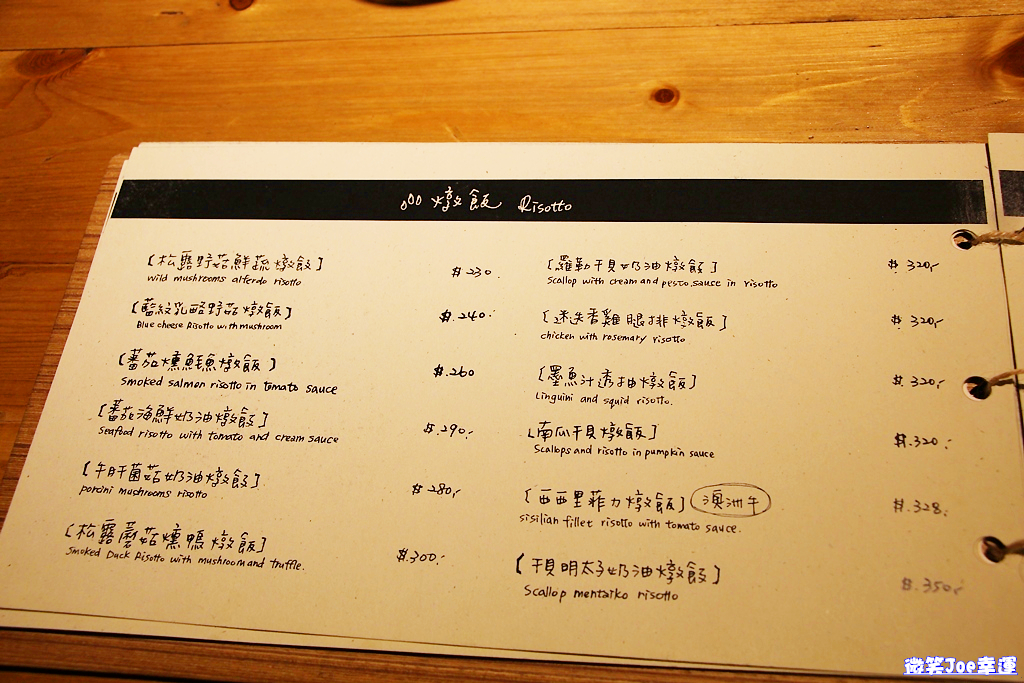 燉飯 Risotto
[松露野菇鮮蔬燉飯] $230.
Wild mushrooms alferdo risotto
[藍紋乳酪野菇燉飯] $.240.
Blue cheese Risotto with mushroom
[蕃茄燻鮭魚燉飯] $.260
Smoked salmon risotto in tomato sauce
[蕃茄海鮮奶油燉飯] $.290.
Seafood risotto with tomato and cream sauce
[牛肝菌菇奶油燉飯] $.280.
porcini mushrooms risotto
[松露蘑菇燻鴨燉飯] $.300.
Smoked Duck Risotto with mushroom and truffle.
[羅勒干貝奶油燉飯] $ 320.
Scallop with cream and pesto sauce in risotto
[迷迭香雞腿排燉飯] $.320.
chicken with rosemary risotto
[墨魚汁透抽燉飯] $.320.
Linguini and squid risotto.
[南瓜干貝燉飯] $.320.
Scallops and risotto in pumpkin sauce
[西西里菲力燉飯] 澳洲牛 $.328.
sisilian fillet risotto with tomato sauce.
[干貝明太子奶油燉飯] $.350.
Scallop mentaiko risotto
微笑Joe幸運